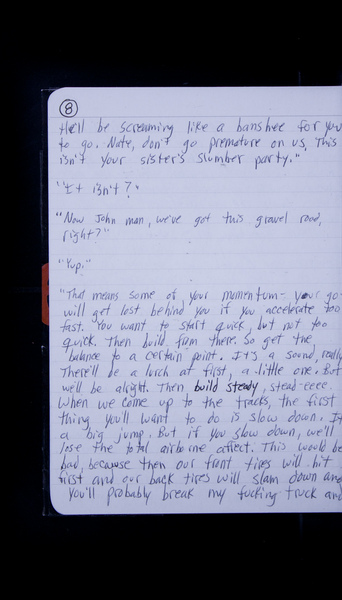 8
He'll be screaming like a banshee for you
to go. Nate, don't go premature on us, This
isn't your sister's slumber party."
"It isn't?"
"Now John man, we've got this gravel road,
right?"
"Yup."
"That means some of your mumentum- your go-
will get lost behind you if you accelerate too
fast. You want to start quick, but not too
quick. Then build from there. So get the
balance to a certain point. It's a sound, really
There'll be a lurch at first, a little one. But
we'll be alright. Then build steady, stead-eeee.
When we come up to the tracks, the first
thing you'll want to do is slow down. It
a big jump. But if you slow down, we'll
lose the total airborne affect. This would be
bad, because then our front tires will hit
first and our back tires will slam down and
you'll probably break my fucking truck and